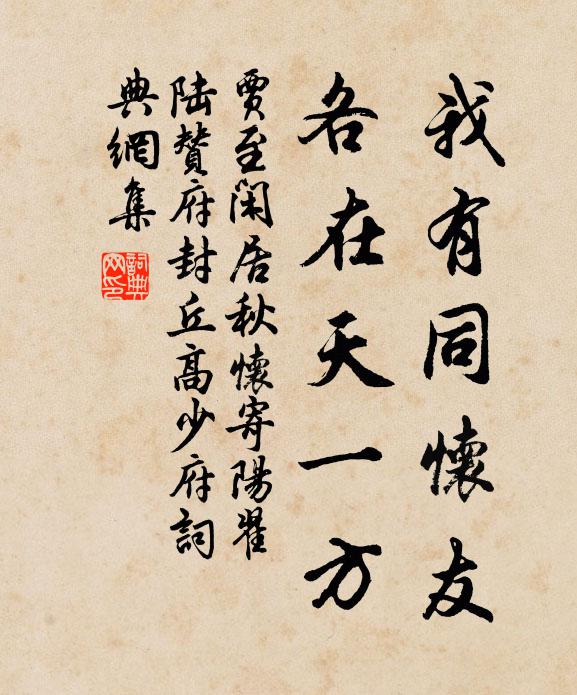 我有同懷友
各在天一方
賈至閑居秋懷寄陽翟
陸贊府封丘高少府詞
典網集
詞典網印